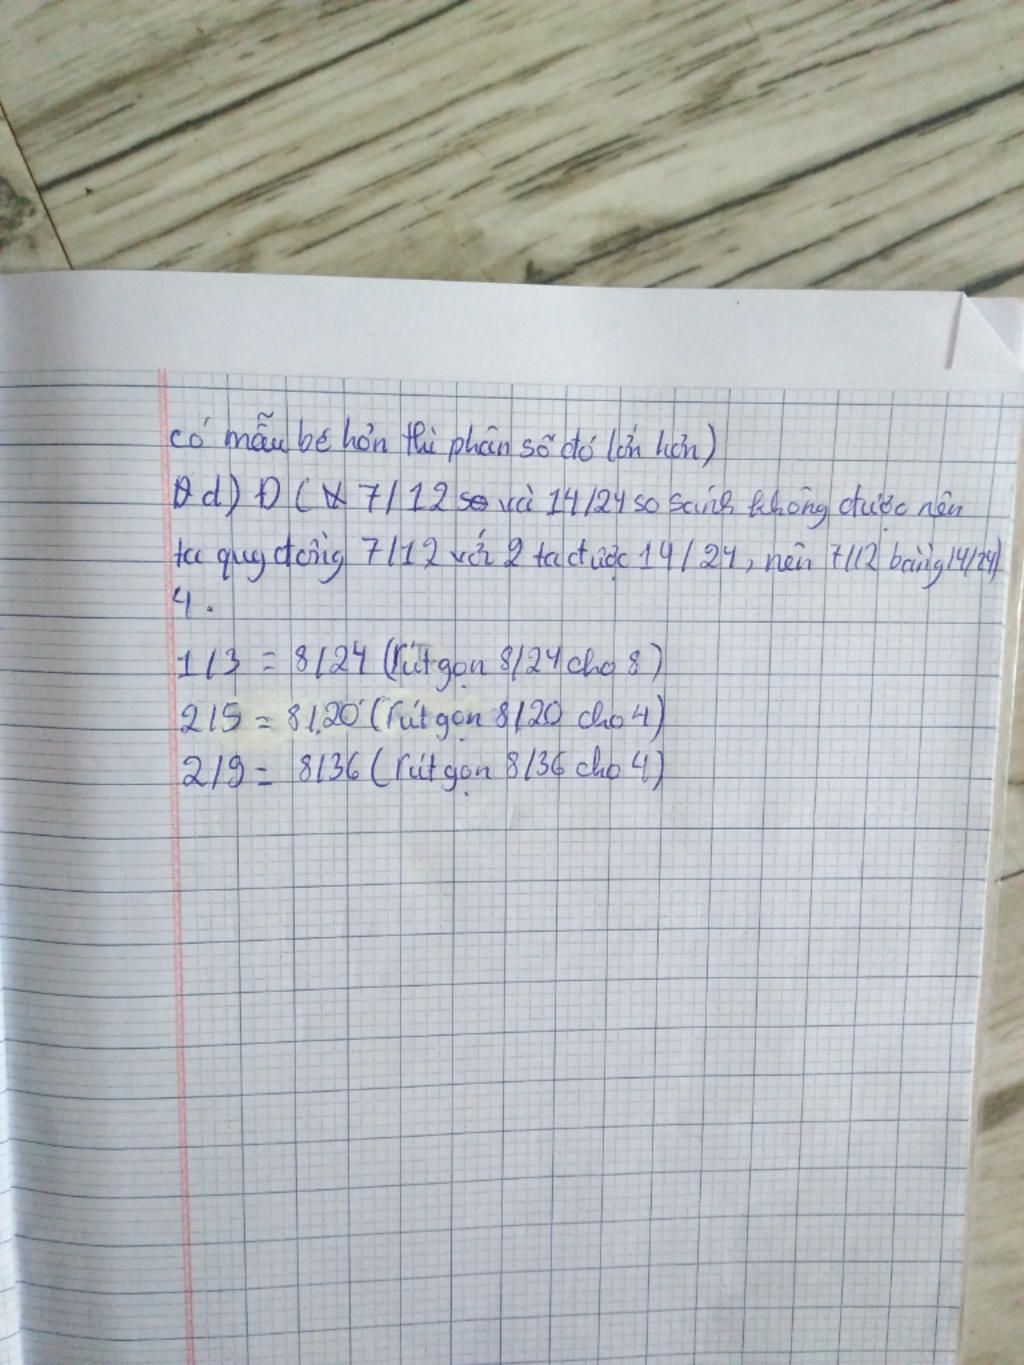 có mẫu bé hơn thì phân số đó lớn hơn)
d) Đ ( 7/12 và 14/24 so sánh không được nên
ta quy đồng 7/12 với 2 ta được 14/24, nên 7/12 bằng 14/24)
4.
1/3 = 8/24 (rút gọn 8/24 cho 8)
2/5 = 8/20 (rút gọn 8/20 cho 4)
2/9 = 8/36 (rút gọn 8/36 cho 4)